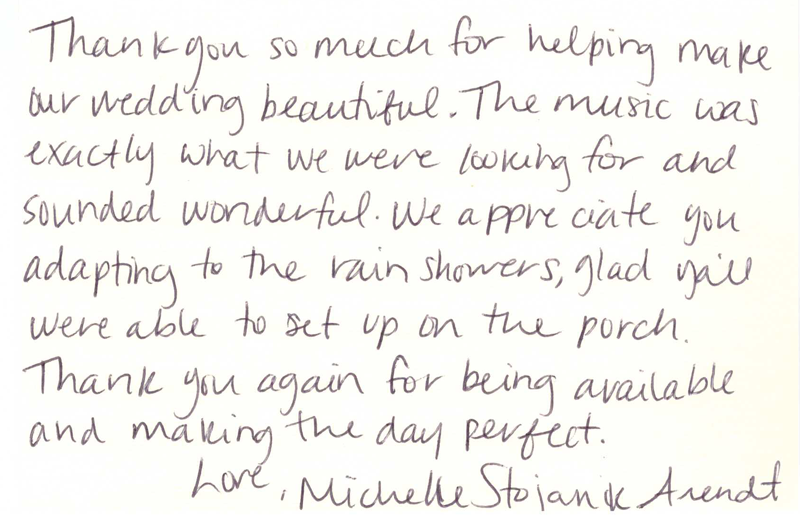 Thank you so much for helping make
our wedding beautiful. The music was
exactly what we were looking for and
sounded wonderful. We appreciate you
adapting to the rain showers, glad ya'll
were able to set up on the porch.
Thank you again for being available
and making the day perfect.
Love, Michelle Stojanik Arendt